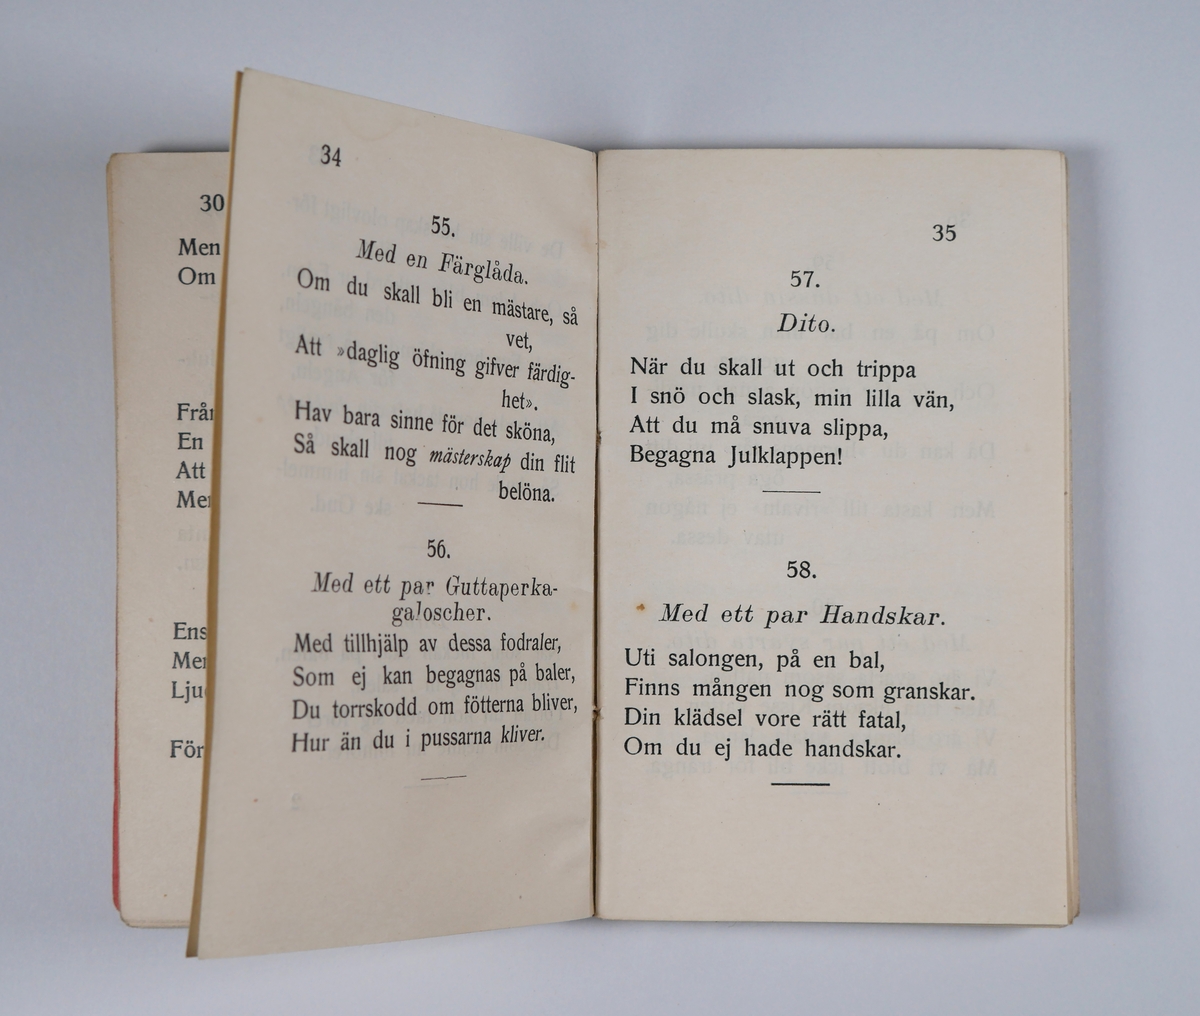 30
Men
Om
Från
En
Att
Ens
Men
För
34
55.
Med en Färglåda.
Om du skall bli en mästare, så
vet,
Att »daglig öfning gifver färdig-
het».
Hav bara sinne för det sköna,
Så skall nog mästerskap din flit
belöna.
56.
Med ett par Guttaperka-
galoscher.
Med tillhjälp av dessa fodraler,
Som ej kan begagnas på baler,
Du torrskodd om fötterna bliver,
Hur än du i pussarna kliver.
35
57.
Dito.
När du skall ut och trippa
I snö och slask, min lilla vän,
Att du må snuva slippa,
Begagna Julklappen!
58.
Med ett par Handskar.
Uti salongen, på en bal,
Finns mången nog som granskar.
Din klädsel vore rätt fatal,
Om du ej hade handskar.